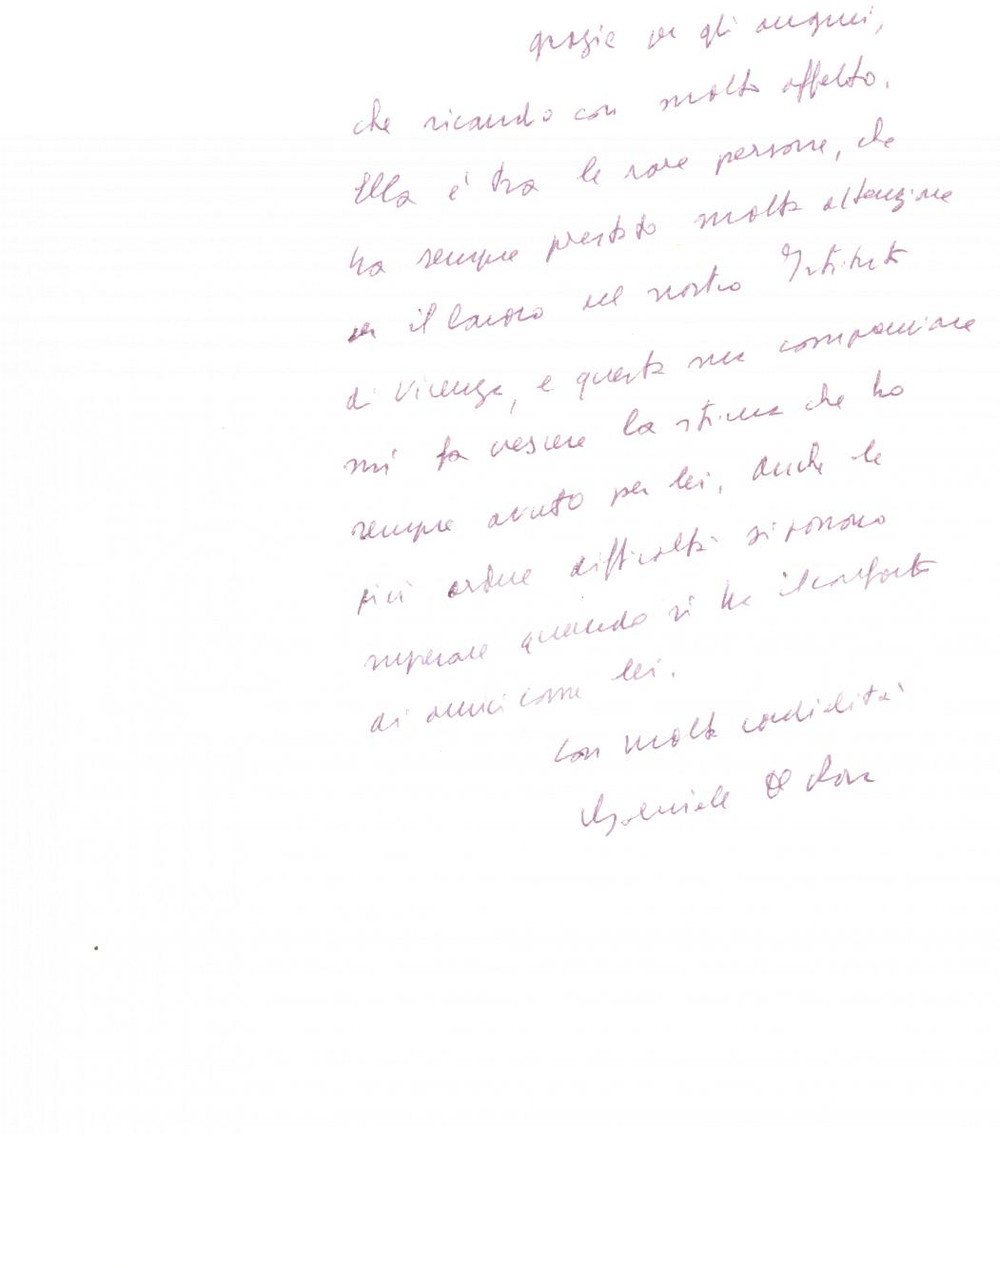 grazie per gli auguri,
che ricambio con molto affetto.
Ella è tra le rare persone, che
ha sempre prestato molta attenzione
per il lavoro nel nostro Istituto
di Vicenza, e questa sua
mi fa crescere la stima che ho
sempre avuto per lei, anche le
più ardue difficoltà si possono
superare quando si ha il conforto
di amici come lei.
Con molta cordialità